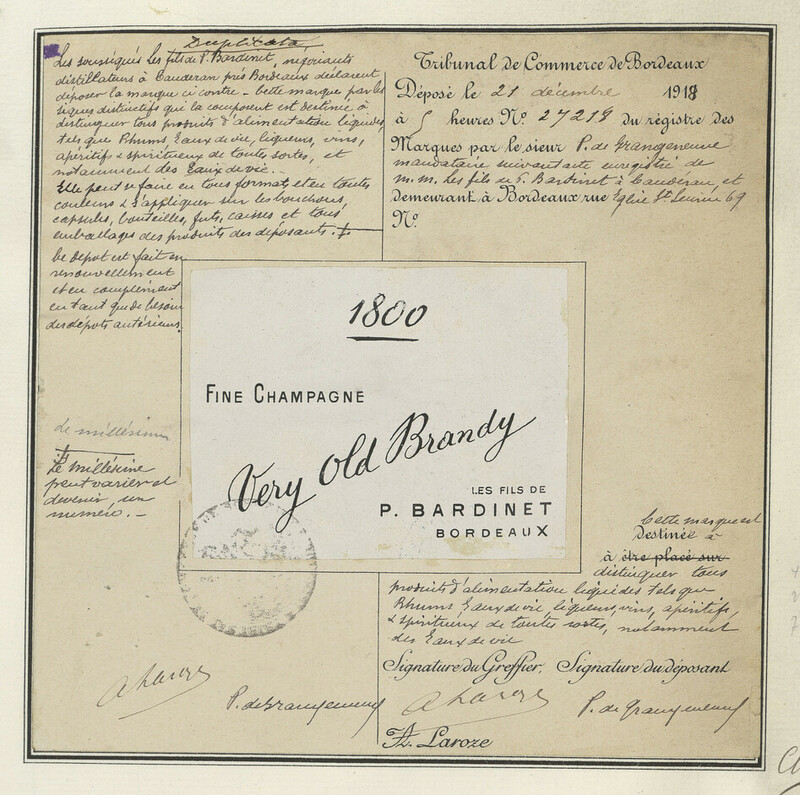 Duplicata
Les soussignés Les fils de P. Bardinet, négociants
distillateurs à Caudéran près Bordeaux déclarent
déposer la marque ci contre - Cette marque par les
signes distinctifs qui la composent est destinée à
distinguer tous produits d'alimentation liquides,
tels que Rhums, Eaux de vie, liqueurs, vins,
apéritifs & spiritueux de toutes sortes, et
notamment des Eaux de vie. -
Elle peut se faire en tous formats et en toutes
couleurs & s'appliquer sur les bouchons,
capsules, bouteilles, futs, caisses et tous
emballages des produits des déposants.
Ce dépot est fait en
renouvellement
et en complément
en tant que de besoin
des dépots antérieurs.
de millésime
Le millésime
peut varier et
devenir un
numéro. -
Tribunal de Commerce de Bordeaux
Déposé le 21 décembre 1918
à 5 heures N° 27218 du régistre des
Marques par le sieur P. de Grangeneuve
mandataire suivant acte enregistré de
M.M. Les fils de P. Bardinet à Caudéran, et
demeurant à Bordeaux rue Eglise St Seurin 69
N°
1800
FINE CHAMPAGNE
Very Old Brandy
LES FILS DE
P. BARDINET
BORDEAUX
Cette marque est
Destinée à
à être placé sur
distinguer tous
produits d'alimentation liquides tels que
Rhums, Eaux de vie, liqueurs, vins, apéritifs,
& spiritueux de toutes sortes, notamment
des Eaux de vie
Signature du Greffier, Signature du déposant
A Laroze
P. de Grangeneuve
A Laroze
P. de Grangeneuve
A. Laroze